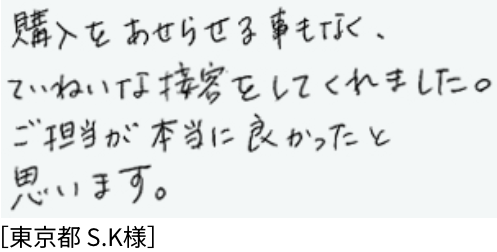 購入をあせらせる事もなく、
ていねいな接客をしてくれました。
ご担当が本当に良かったと
思います。
[東京都 S.K様]